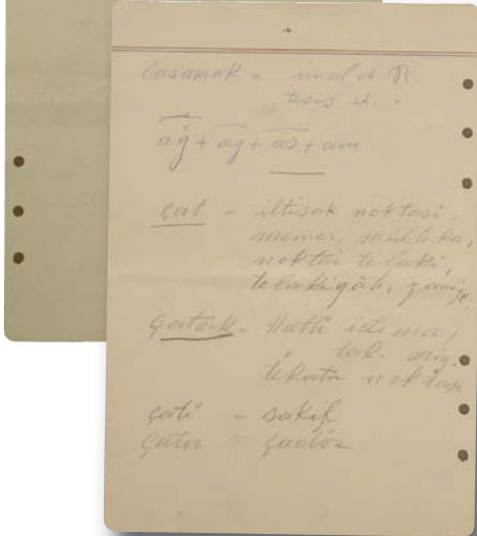 Casamak = imal et.
tesis et. "
ağ + ag + as + am
çat - iltisak noktasi,
memer, mülteka,
noktai telaki,
telakigâh, zaviye,
çatak - Hattı içtima,
noktasi
çatı - sakıf
çatır = çadır